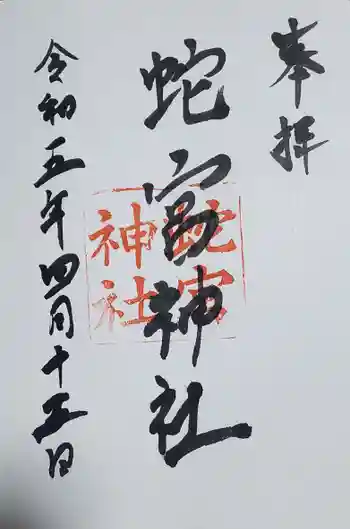 奉拝
蛇宮神社
蛇宮
神社
令和五年四月十五日